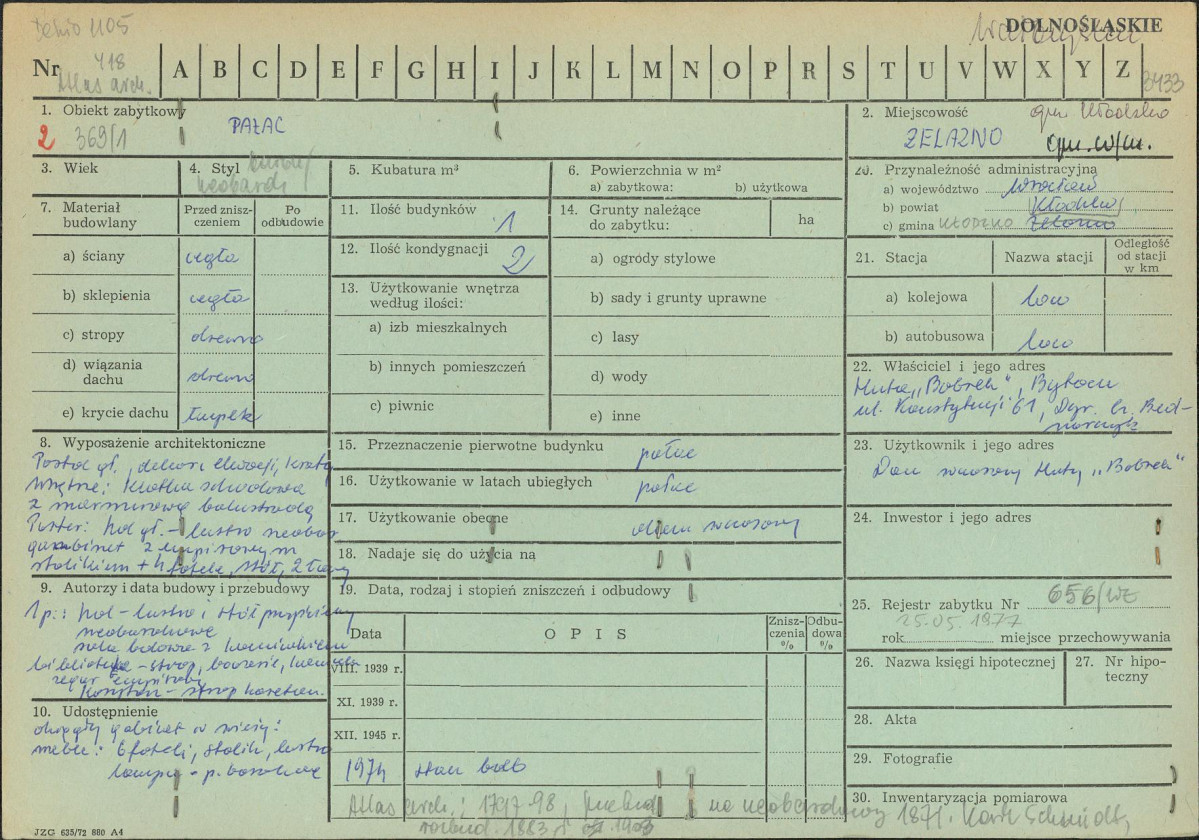 Dehio 1105
DOLNOŚLĄSKIE
Wałbrzych
Nr 418 A B C D E F G H I J K L M N O P R S T U V W X Y Z
Atlas arch.
3433
1. Obiekt zabytkowy
2 369/1 PAŁAC
2. Miejscowość gm Kłodzko
ŻELAZNO gm. w/m.
3. Wiek
4. Styl
neobarok
5. Kubatura m³
6. Powierzchnia w m²
a) zabytkowa: b) użytkowa
20. Przynależność administracyjna
a) województwo Wrocław
b) powiat Kłodzko
c) gmina KŁODZKO Żelazno
7. Materiał budowlany
Przed zniszczeniem
Po odbudowie
a) ściany cegła
b) sklepienia cegła
c) stropy drewno
d) wiązania dachu drewno
e) krycie dachu łupek
11. Ilość budynków 1
12. Ilość kondygnacji 2
13. Użytkowanie wnętrza
według ilości:
a) izb mieszkalnych
b) innych pomieszczeń
c) piwnic
14. Grunty należące
do zabytku: ha
a) ogrody stylowe
b) sady i grunty uprawne
c) lasy
d) wody
e) inne
21. Stacja
Nazwa stacji
Odległość
od stacji
w km
a) kolejowa loco
b) autobusowa loco
22. Właściciel i jego adres
Huta „Bobrek", Bytom
ul. Konstytucji 61, Dyr. Cz. Bed-
narczyk
8. Wyposażenie architektoniczne
Portal gł., dekor. elewacji, kraty
wnętrze: klatka schodowa
z marmurową balustradą
Parter: hol gł. - lustro neobar
gabinet z empirowym
stolikiem + 4 fotele, stół, 2
15. Przeznaczenie pierwotne budynku pałac
16. Użytkowanie w latach ubiegłych pałac
17. Użytkowanie obecne dom wczasowy
18. Nadaje się do użycia na
23. Użytkownik i jego adres
Dom wczasowy Huty „Bobrek"
24. Inwestor i jego adres
9. Autorzy i data budowy i przebudowy
1 p.: hol - lustro i stół
neobarokowe
sala balowa z kominkiem
biblioteka - strop, boazerie,
zegar empirowy
strop kaseton.
19. Data, rodzaj i stopień zniszczeń i odbudowy
Data
OPIS
Zniszczenia %
Odbudowa %
VIII. 1939 r.
XI. 1939 r.
XII. 1945 r.
1974 stan dob
25. Rejestr zabytku Nr 656/WŁ
25.05.1977
rok miejsce przechowywania
26. Nazwa księgi hipotecznej
27. Nr hipoteczny
28. Akta
29. Fotografie
30. Inwentaryzacja pomiarowa
10. Udostępnienie
okrągły gabinet w wieży:
meble: 6 foteli, stolik, lustro
lampy - p. barokowe
Atlas arch.: 1797-98, przebud. na neobarokowy 1871. Karl Schmidt,
rozbud. 1883 i 1903
JZG 635/72 880 A4